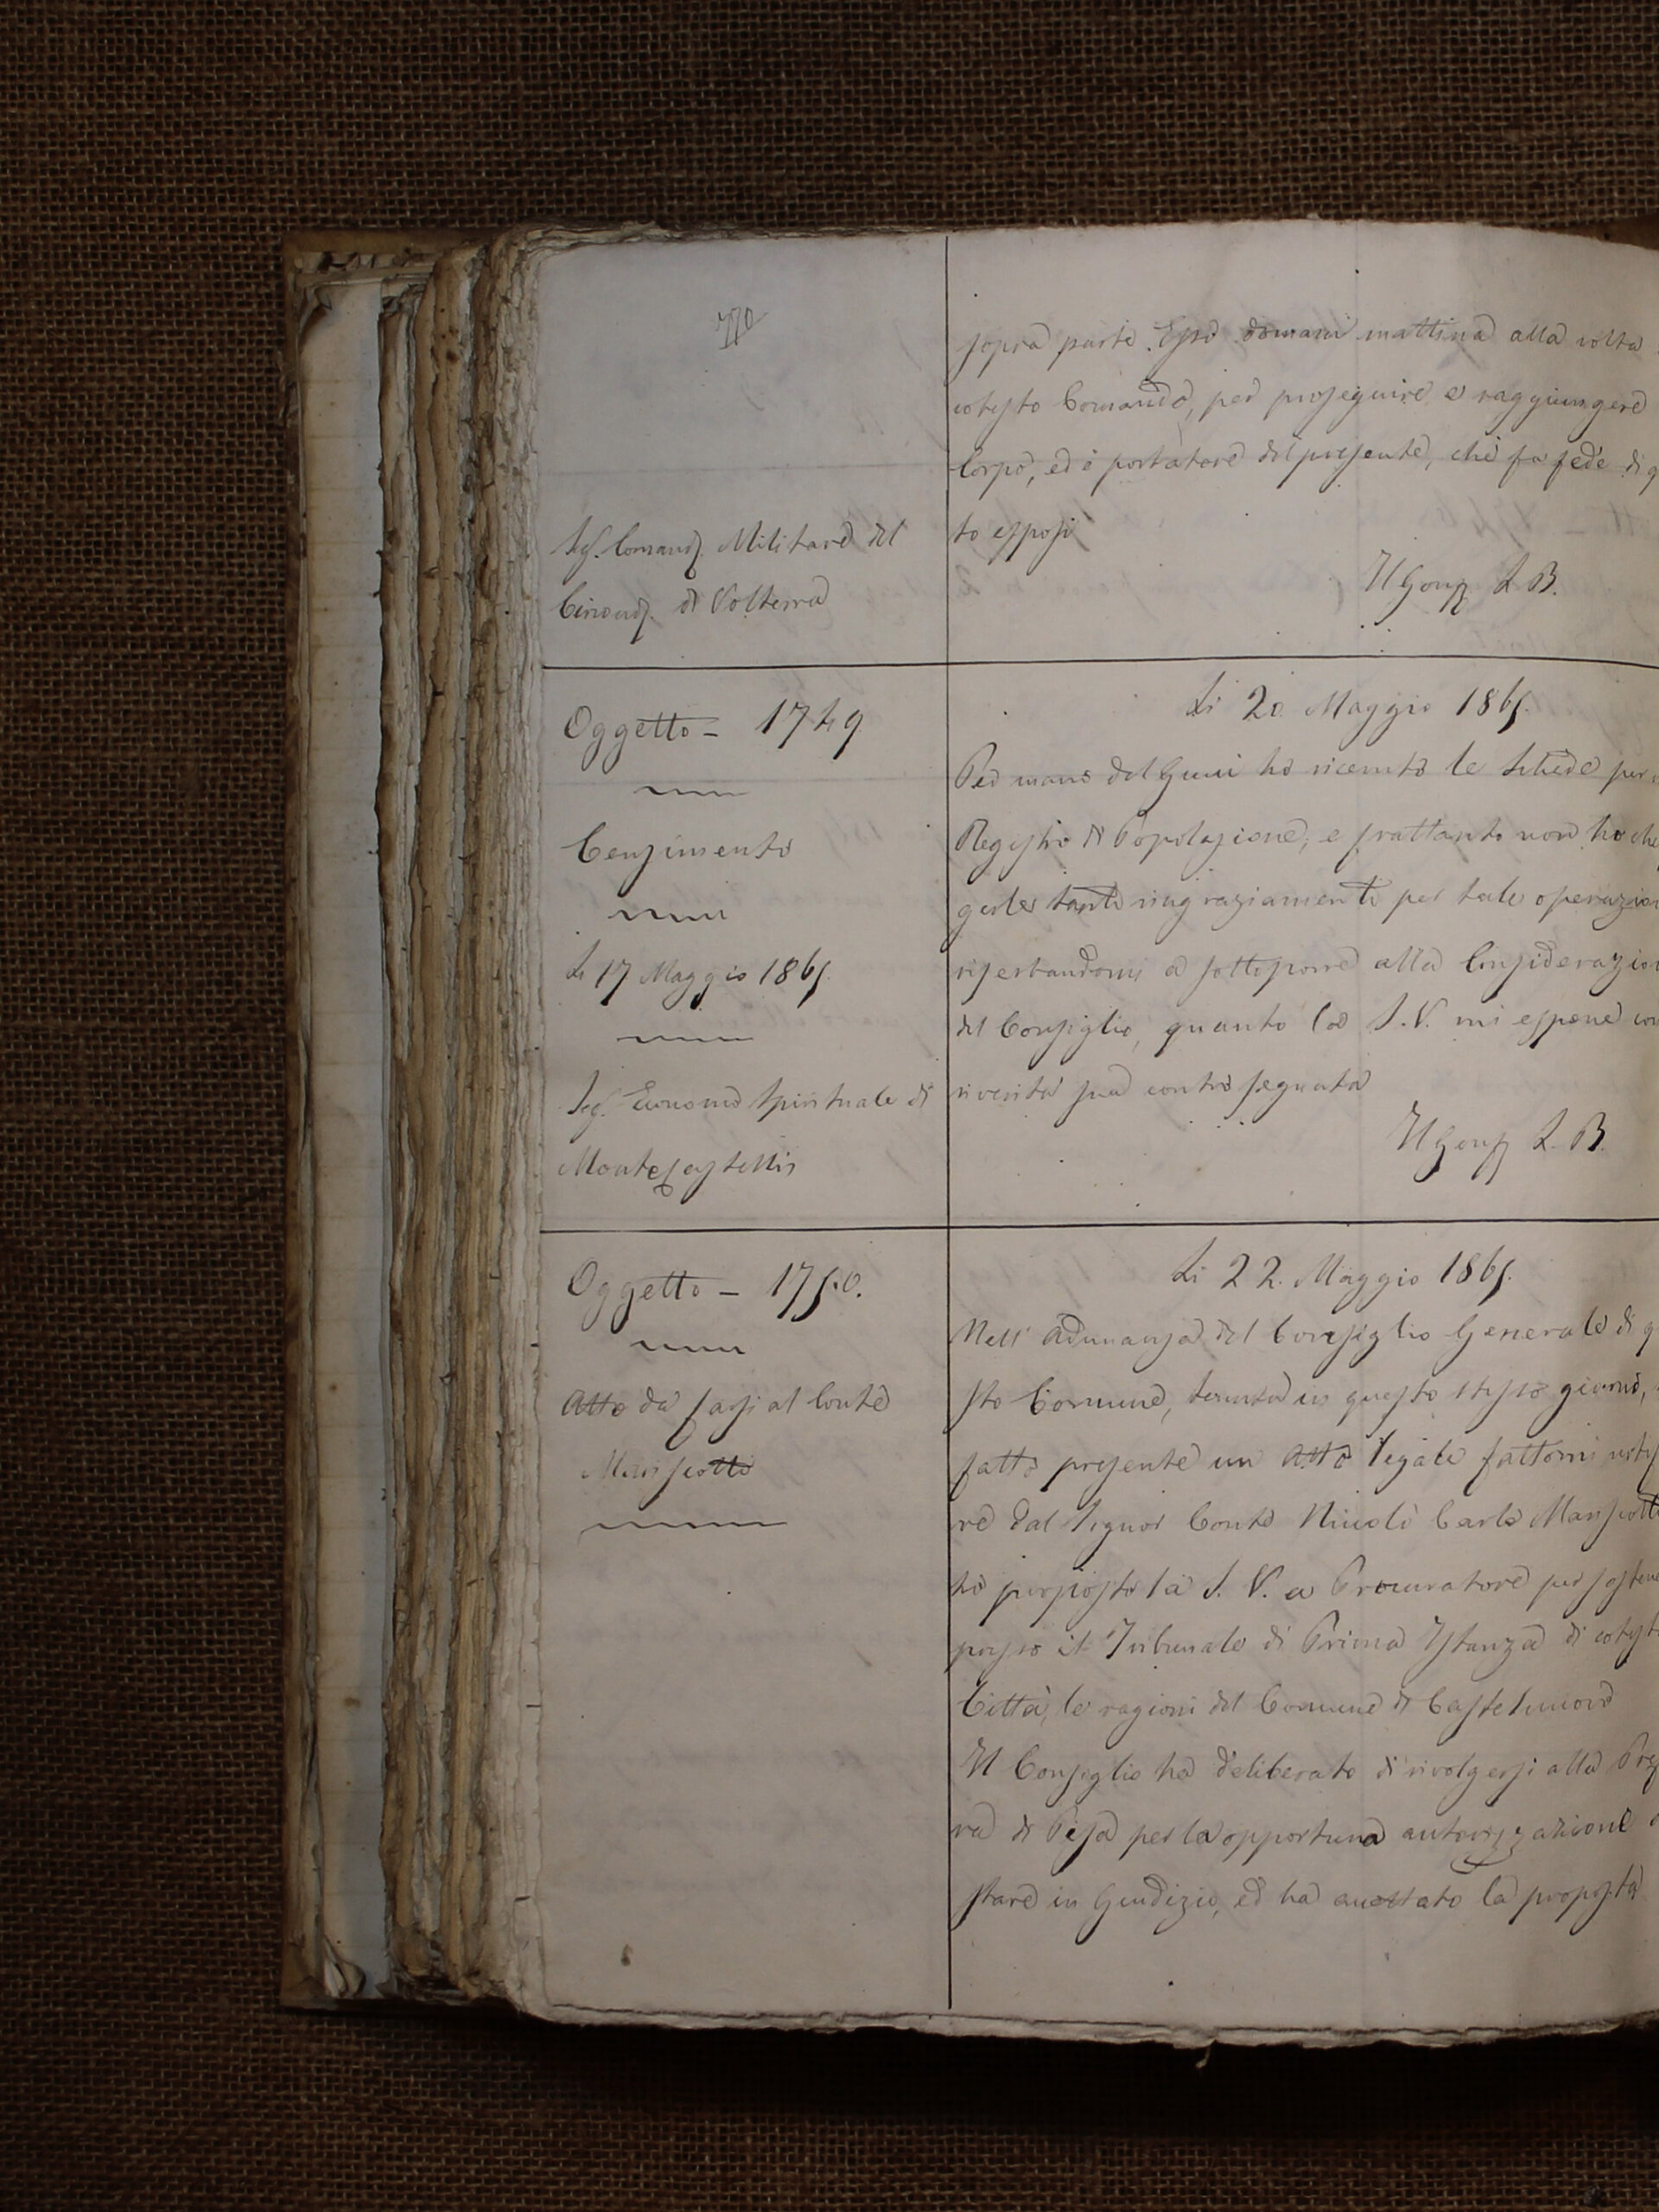 770
sopra parte. Esso domani mattina alla volta
cotesto Comando, per proseguire e raggiungere
Corpo, ed è portatore del presente, che fa fede di q
to esposi
Il Gonf. L. B.
Sig. Comand. Militare del
Circond. di Volterra
Oggetto - 1749
Censimento
Li 17 Maggio 1865.
Sig. Economo Spirituale di
Montecastelli
Li 20 Maggio 1865.
Per mano del Guui ho ricevuto le Schede per
Registro di Popolazione, e frattanto non ho che
gerle tanti ringraziamenti per tale operazion
riserbandomi a sottoporre alla Considerazion
del Consiglio, quanto la S. V. mi espone con
riverita sua contro segnata
Il Gonf. L. B.
Oggetto - 1750.
Atto da farsi al Conte
Mariscotti
Li 22. Maggio 1865.
Nell' Adunanza del Consiglio Generale di q
sto Comune, tenuta in questo stesso giorno,
fatto presente un Atto legale fattomi notif
re dal Signor Conte Niccolò Carlo Mariscotti
ho proposto la S. V. a Procuratore per sostene
presso il Tribunale di Prima Istanza di cotest
Città, le ragioni del Comune di Castelnuovo
Il Consiglio ha deliberato di rivolgersi alla Pref
ra di Pisa per la opportuna autorizzazione
stare in Giudizio, ed ha accettato la proposta